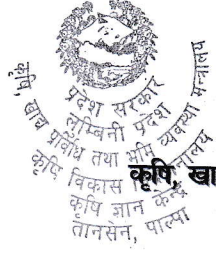 प्रदेश सरकार
लुम्बिनी प्रदेश
कृषि, खाद्य प्रविधि तथा भूमि व्यवस्था मन्त्रालय
कृषि विकास
कृषि ज्ञान केन्द्र
तानसेन, पाल्पा
कृषि, खा